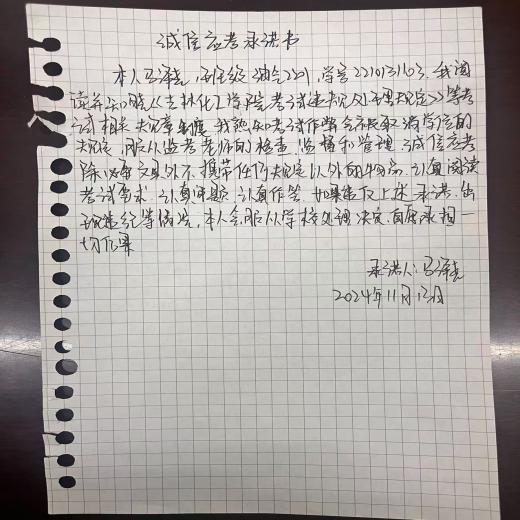 诚信应考承诺书
本人马泽尧，班级油会2201，学号2210131103，我阅
读并知晓《吉林化工学院考试违规处理规定》等考
试相关规章制度，我熟知考试作弊会被取消学位的
规定，服从监考老师的检查、监督和管理，诚信应考
除必要文具外不携带任何规定以外的物品，认真阅读
考试要求，认真审题，认真作答，如果违反上述承诺，出
现违纪等情况，本人会服从学校处理决定，自愿承担一
切后果
承诺人：马泽尧
2024年11月13日